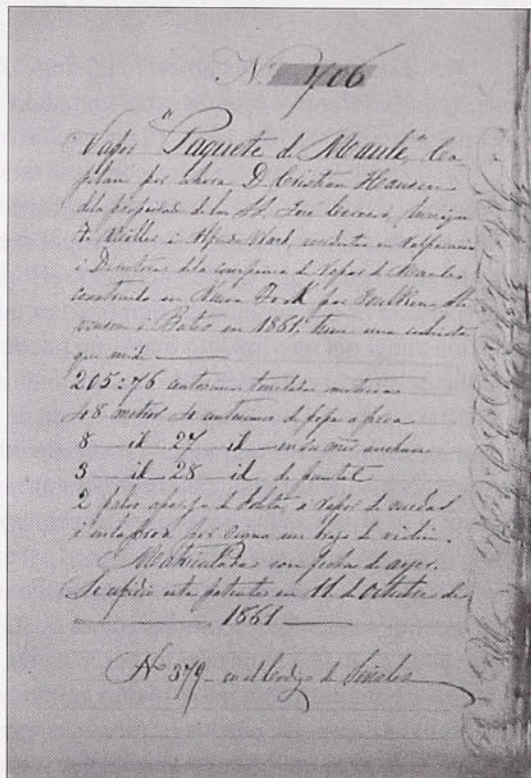 Nº 706
Vapor "Paquete de Maule," Ca
pitan por ahora D. Cristian Hansen
de la propiedad de los SS. José Cervero,
i Alfredo Ward, residentes en Valparaiso
i Directores de la compañia de Vapores de Maule
construido en Nueva York por
i Bates en 1861, tiene una cubierta
que mide
205:76 centesimas toneladas metricas
48 metros 40 centesimas de popa a proa
8 id 27 id en su mayor anchura
3 id 28 id de puntal
2 palos aparejo de goleta, a vapor de ruedas
i en la proa por un de
Matriculado con fecha de ayer.
Se espidió esta patente en 11 de Octubre de
1861
Nº 379 en el Codigo de Señales